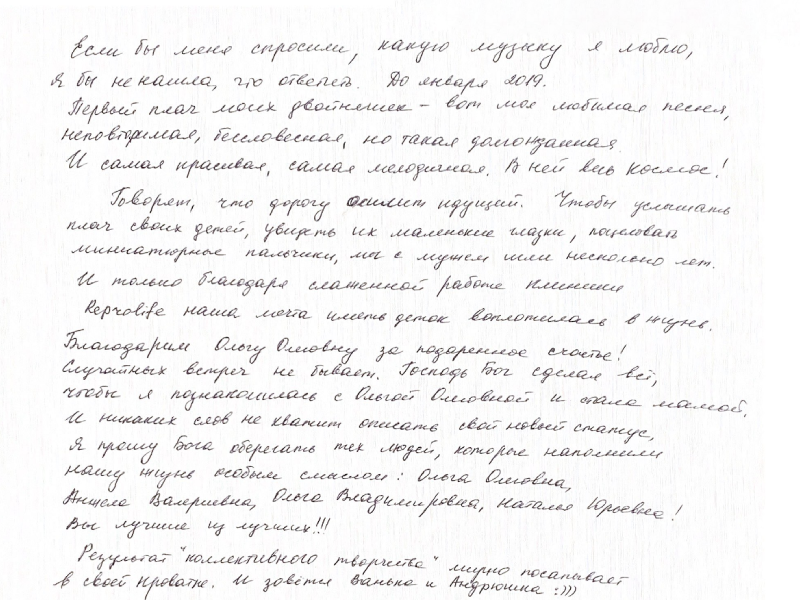 Если бы меня спросили, какую музыку я люблю,
я бы не нашла, что ответить. До января 2019.
Первый плач моих двойняшек – вот моя любимая песня,
неповторимая, бессловесная, но такая долгожданная.
И самая красивая, самая мелодичная. В ней весь космос!
Говорят, что дорогу осилит идущий. Чтобы услышать
плач своих детей, увидеть их маленькие глазки, поцеловать
миниатюрные пальчики, мы с мужем шли несколько лет.
И только благодаря слаженной работе клиники
Reprolife наша мечта иметь деток воплотилась в жизнь.
Благодарим Ольгу Олеговну за подаренное счастье!
Случайных встреч не бывает. Господь Бог сделал всё,
чтобы я познакомилась с Ольгой Олеговной и стала мамой.
И никаких слов не хватит описать свой новый статус,
Я прошу Бога оберегать тех людей, которые наполнили
нашу жизнь особым смыслом: Ольга Олеговна,
Анжела Валериевна, Ольга Владимировна, Наталья Юрьевна!
Вы лучшие из лучших!!!
Результат "коллективного творчества" мирно посапывает
в своей кроватке. И зовётся Ванька и Андрюшка :)))